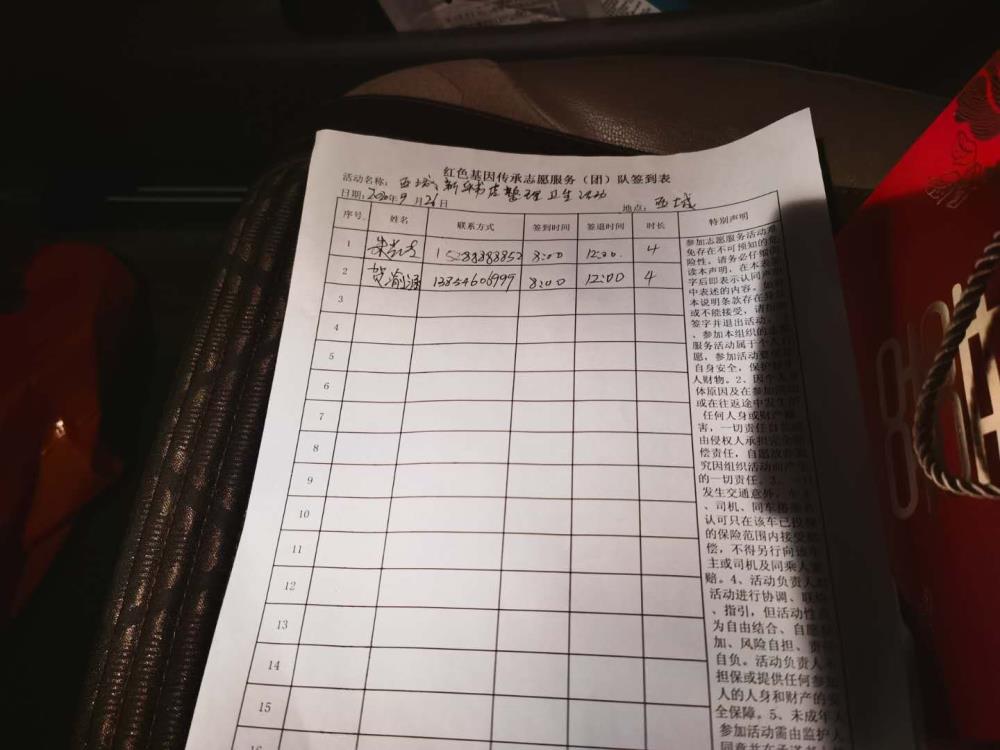 红色基因传承志愿服务（团）队签到表
活动名称：西城新华书店整理卫生活动
日期：2020年9月26日 地点：西城
序号 姓名 联系方式 签到时间 签退时间 时长 特别声明
1 15288888852 8:00 12:00. 4
2 贺渝涵 13854606999 8:00 12:00 4
3
4
5
6
7
8
9
10
11
12
13
14
15
16
参加志愿服务活动难
免存在不可预知的危
险性。请务必仔细阅
读本声明，在本表签
字后即表示认同声明
中表述的内容。如对
本说明条款存在
或不能接受，请
签字并退出活动。
、参加本组织的志愿
服务活动属于个人自
愿，参加活动要
自身安全，保护
人财物。2、因个人身
体原因及在参加活动
或在往返途中发生的
任何人身或财产损
害，一切责任自负或
由侵权人承担
偿责任，自愿放弃追
究因组织活动而产生
的一切责任。3、
发生交通意外，
、司机、同车
认可只在该车已投保
的保险范围内接受赔
偿，不得另行向该车
主或司机及同乘人索
赔。4、活动负责人对
活动进行协调、联络
、指引，但活动性质
为自由结合、自愿参
加、风险自担、责任
自负。活动负责人不
担保或提供任何参加
人的人身和财产的安
全保障。5、未成年人
参加活动需由监护人